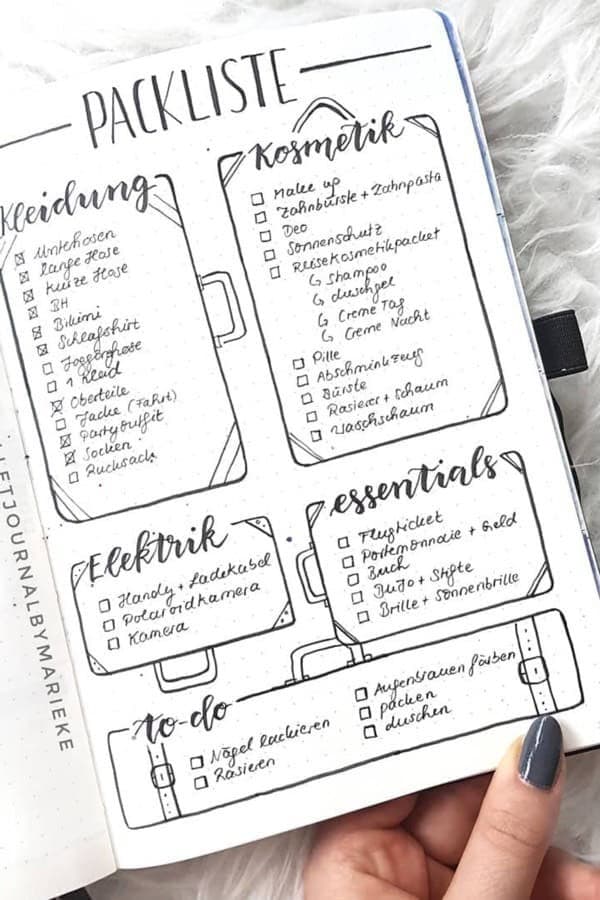 PACKLISTE
Kleidung
Unterhosen
lange Hose
kurze Hose
BH
Bikini
Schlafshirt
Jogginghose
1 Kleid
Oberteile
Jacke (Fahrt)
Partyoutfit
Socken
Rucksack
Kosmetik
Make up
Zahnbürste + Zahnpasta
Deo
Sonnenschutz
Reisekosmetikpacket
↳ Shampoo
↳ duschgel
↳ Creme Tag
↳ Creme Nacht
Pille
Abschminkzeug
Bürste
Rasierer + Schaum
Waschschaum
Elektrik
Handy + Ladekabel
Polaroidkamera
Kamera
essentials
Flugticket
Portemonnaie + Geld
Buch
BuJo + Stifte
Brille + Sonnenbrille
to-do
Nägel lackieren
Rasieren
Augenbrauen färben
packen
duschen
LETJOURNALBYMARIEKE